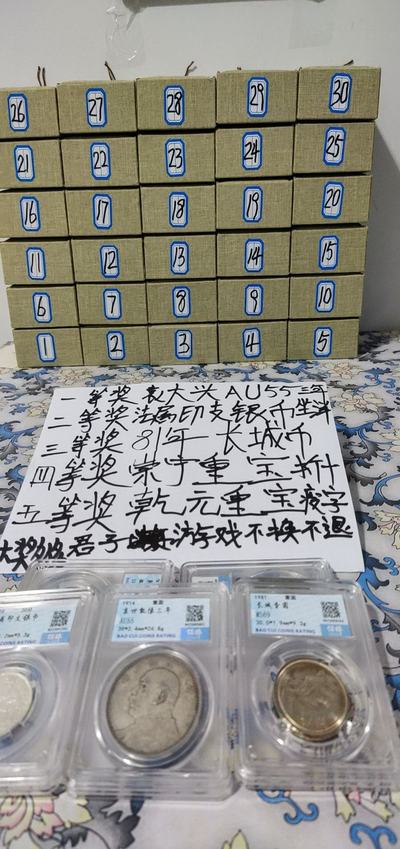 26 27 28 29 30
21 22 23 24 25
16 17 18 19 20
11 12 13 14 15
6 7 8 9 10
1 2 3 4 5
一等奖 袁大头 AU55 三年
二等奖 法属印支银币坐洋
三等奖 81年 长城币
四等奖 崇宁重宝折十
五等奖 乾元重宝瘦字
君子游戏不换不退
1914 壹圆
袁世凯像三年
AU55
39*2.4mm*26.6g
BAO CUI COINS RATING
1981 壹圆
长城壹圆
MS63
30.0*1.9mm*9.3g
BAO CUI COINS RATING